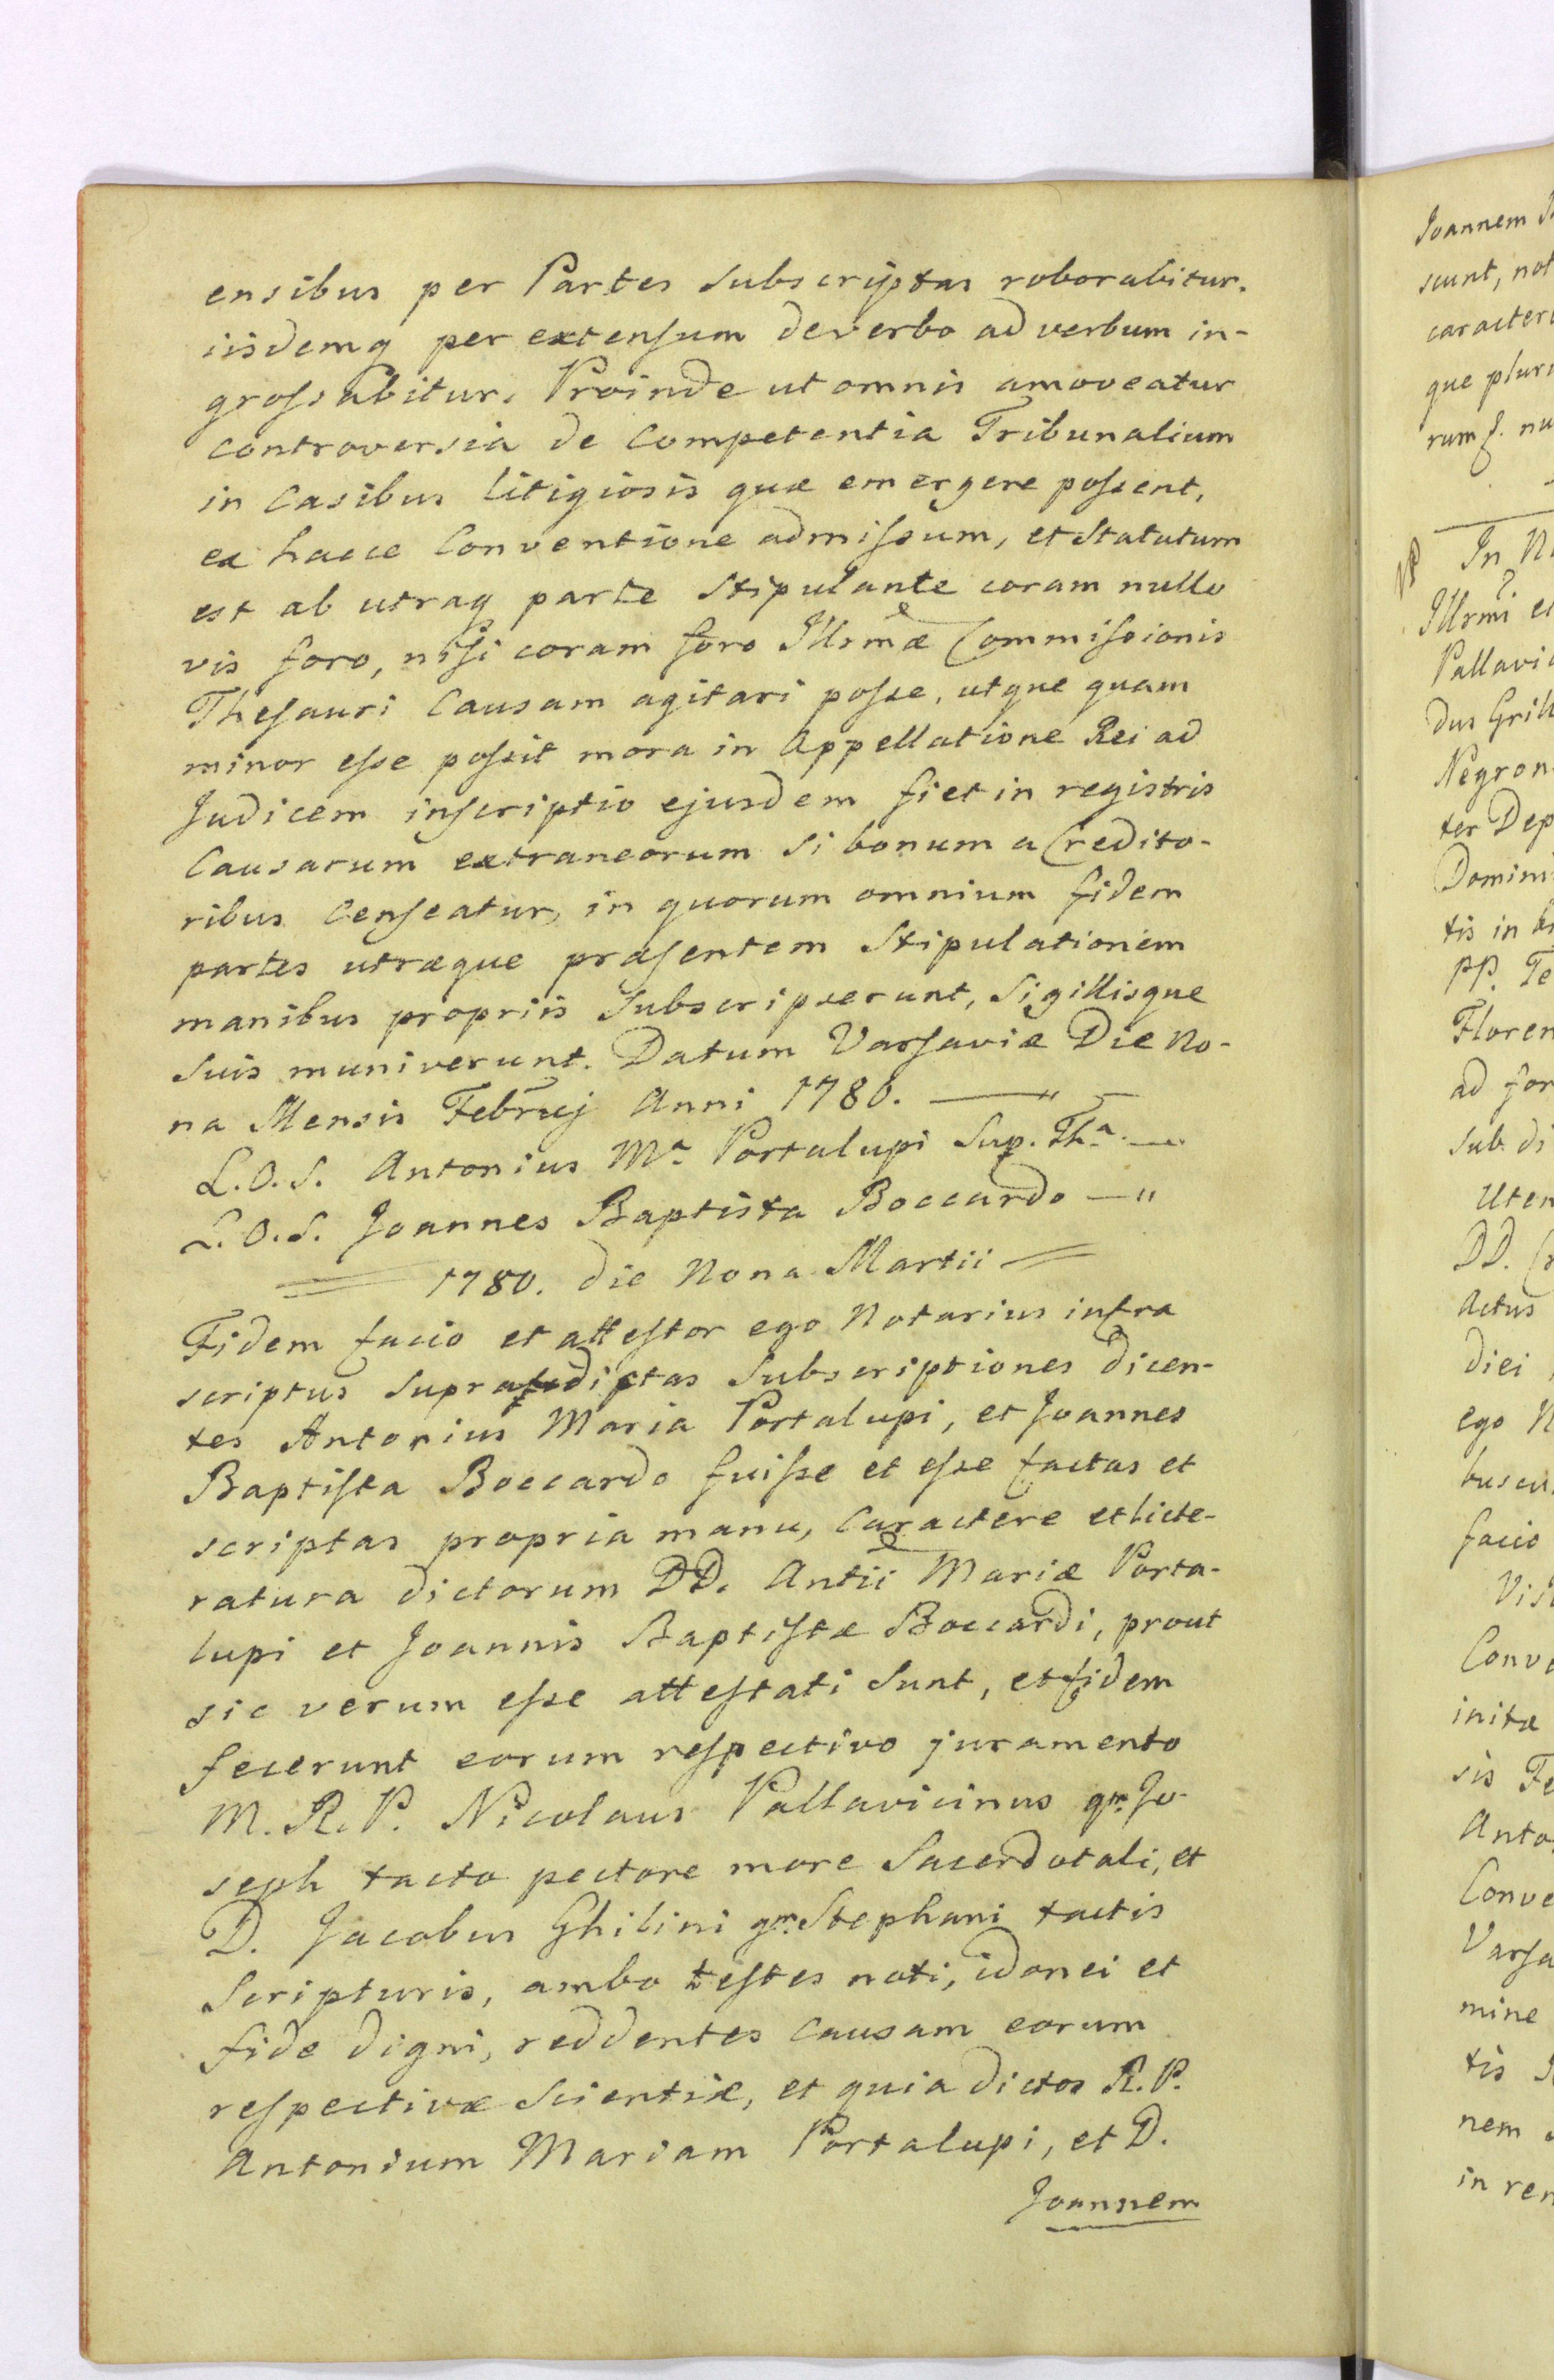 ensibus per Partes subscriptas roborabitur.
iisdemq per extensum deverbo ad verbum in-
grossabitur. Proinde ut omnis amoveatur
controversia de Competentia Tribunalium
in Casibus litigiosis quæ emergere possent,
ex hacce Conventione admissum, et Statutum
est ab utraq parte Stipulante coram nullo
vis foro, nisi coram foro Illsmæ Commissionis
Thesauri Causam agitari posse, utque quam
minor esse possit mora in Appellatione Rei ad
Judicem inscriptio ejusdem fiet in registris
Causarum extraneorum si bonum a Credito-
ribus Censeatur, in quorum omnium fidem
partes utræque præsentem Stipulationem
manibus propriis Subscripserunt, Sigillisque
suis muniverunt. Datum Varsaviæ Die No-
na Mensis Februj Anni 1780.
L.O.S. Antonius Ma Portalupi Sup. Tha.
L.O.S. Joannes Baptista Boccardo
1780. die Nona Martii
Fidem facio et attestor ego Notarius infra
scriptus supradictas Subscriptiones dicen-
tes Antonius Maria Portalupi, et Joannes
Baptista Boccardo fuisse et esse factas et
scriptas propria manu, Caractere et licte-
ratura dictorum DD. Antii Mariæ Porta-
lupi et Joannis Baptistæ Boccardi, prout
sic verum esse attestati sunt, et fidem
fecerunt eorum respectivo juramento
M. R. P. Nicolaus Pallavicinus qm. Jo-
seph tacto pectore more Sacerdotali, et
D. Jacobus Ghilini qm. Stephani tactis
Scripturis, ambo testes noti, idonei et
fide digni, reddentes causam eorum
respectivæ Scientiæ, et quia dictos R. P.
Antonium Mariam Portalupi, et D.
Joannem
Joannem
sunt, not
caracter
que plur
rum f. nu
In N
Illsmi et
Pallavi
dus Grill
Negron
ter Dep
Domini
tis in
PP. Te
Floren
ad for
sub di
Uten
DD.
Actus
diei
ego N
buscu
facio
Vis
Conv
initæ
sis Fe
Anto
Conve
Varsa
mine
tis
nem
in ren